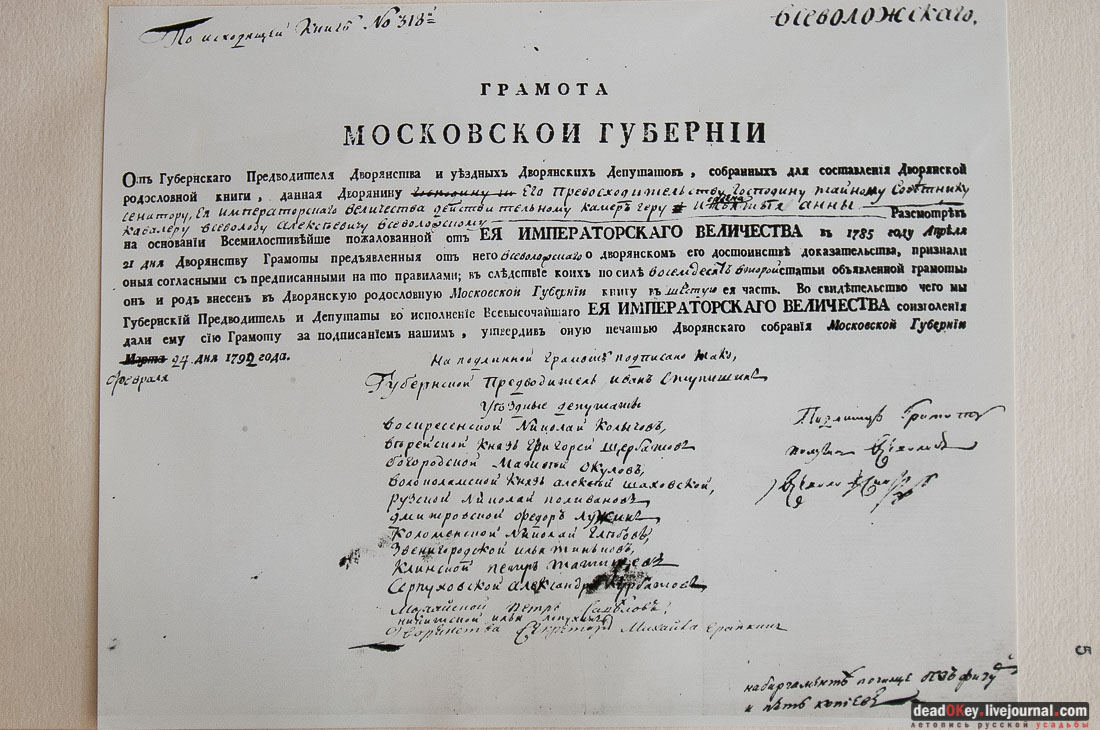 По исходящей Книгѣ No 318й
Всеволожскаго.
ГРАМОТА
МОСКОВСКОИ ГУБЕРНІИ
Отъ Губернскаго Предводителя Дворянства и уѣздныхъ Дворянскихъ Депутатовъ, собранныхъ для составленія Дворянской
родословной книги, данная Дворянину Его Превосходительству Господину тайному Совѣтнику
сенатору, Ея Императорскаго Величества действительному камергеру и ордена святыя анны
кавалеру Всеволоду Алексѣевичу Всеволожскому Разсмотрѣвъ
на основаніи Всемилостивѣйше пожалованной отъ ЕЯ ИМПЕРАТОРСКАГО ВЕЛИЧЕСТВА въ 1785 году Апрѣля
21 дня Дворянству Грамоты предъявленныя отъ него Всеволожскаго о дворянскомъ его достоинствѣ доказательства, признали
оныя согласными съ предписанными на то правилами; въ слѣдствіе коихъ по силѣ восемдесятъ второй статьи объявленной грамоты
онъ и родъ внесенъ въ Дворянскую родословную Московской Губерніи книгу въ шестую ея часть. Во свидѣтельство чего мы
Губернскій Предводитель и Депутаты во исполненіе Всевысочайшаго ЕЯ ИМПЕРАТОРСКАГО ВЕЛИЧЕСТВА соизволенія
дали ему сію Грамоту за подписаніемъ нашимъ, утвердивъ оную печатью Дворянскаго собранія Московской Губерніи
Марта 24 дня 1792 года.
февраля
На подлинной Грамотѣ подписано тако,
Губернской Предводитель иванъ Ступишинъ
Уѣздные депутаты
воскресенской Николай Колычовъ,
верейской Князь Григорей Щербатовъ
богородской Матвей Окуловъ,
волоколамской Князь алексей шаховской,
рузской Николай поливановъ
дмитровской федоръ лужинъ
Коломенской Николай Глебовъ,
Звенигородской илья тиньковъ,
Клинской петръ Татищевъ
Серпуховской Александръ Курбатовъ
Можайской Петръ Савёловъ,
никитской илья лопухинъ
Дворянства Секретарь Михайла еропкинъ
Подлинную Грамоту
получилъ Всеволодъ
Всеволожской
5
на
и пять копеекъ
deadOKey.livejournal.com
летопись русской усадьбы